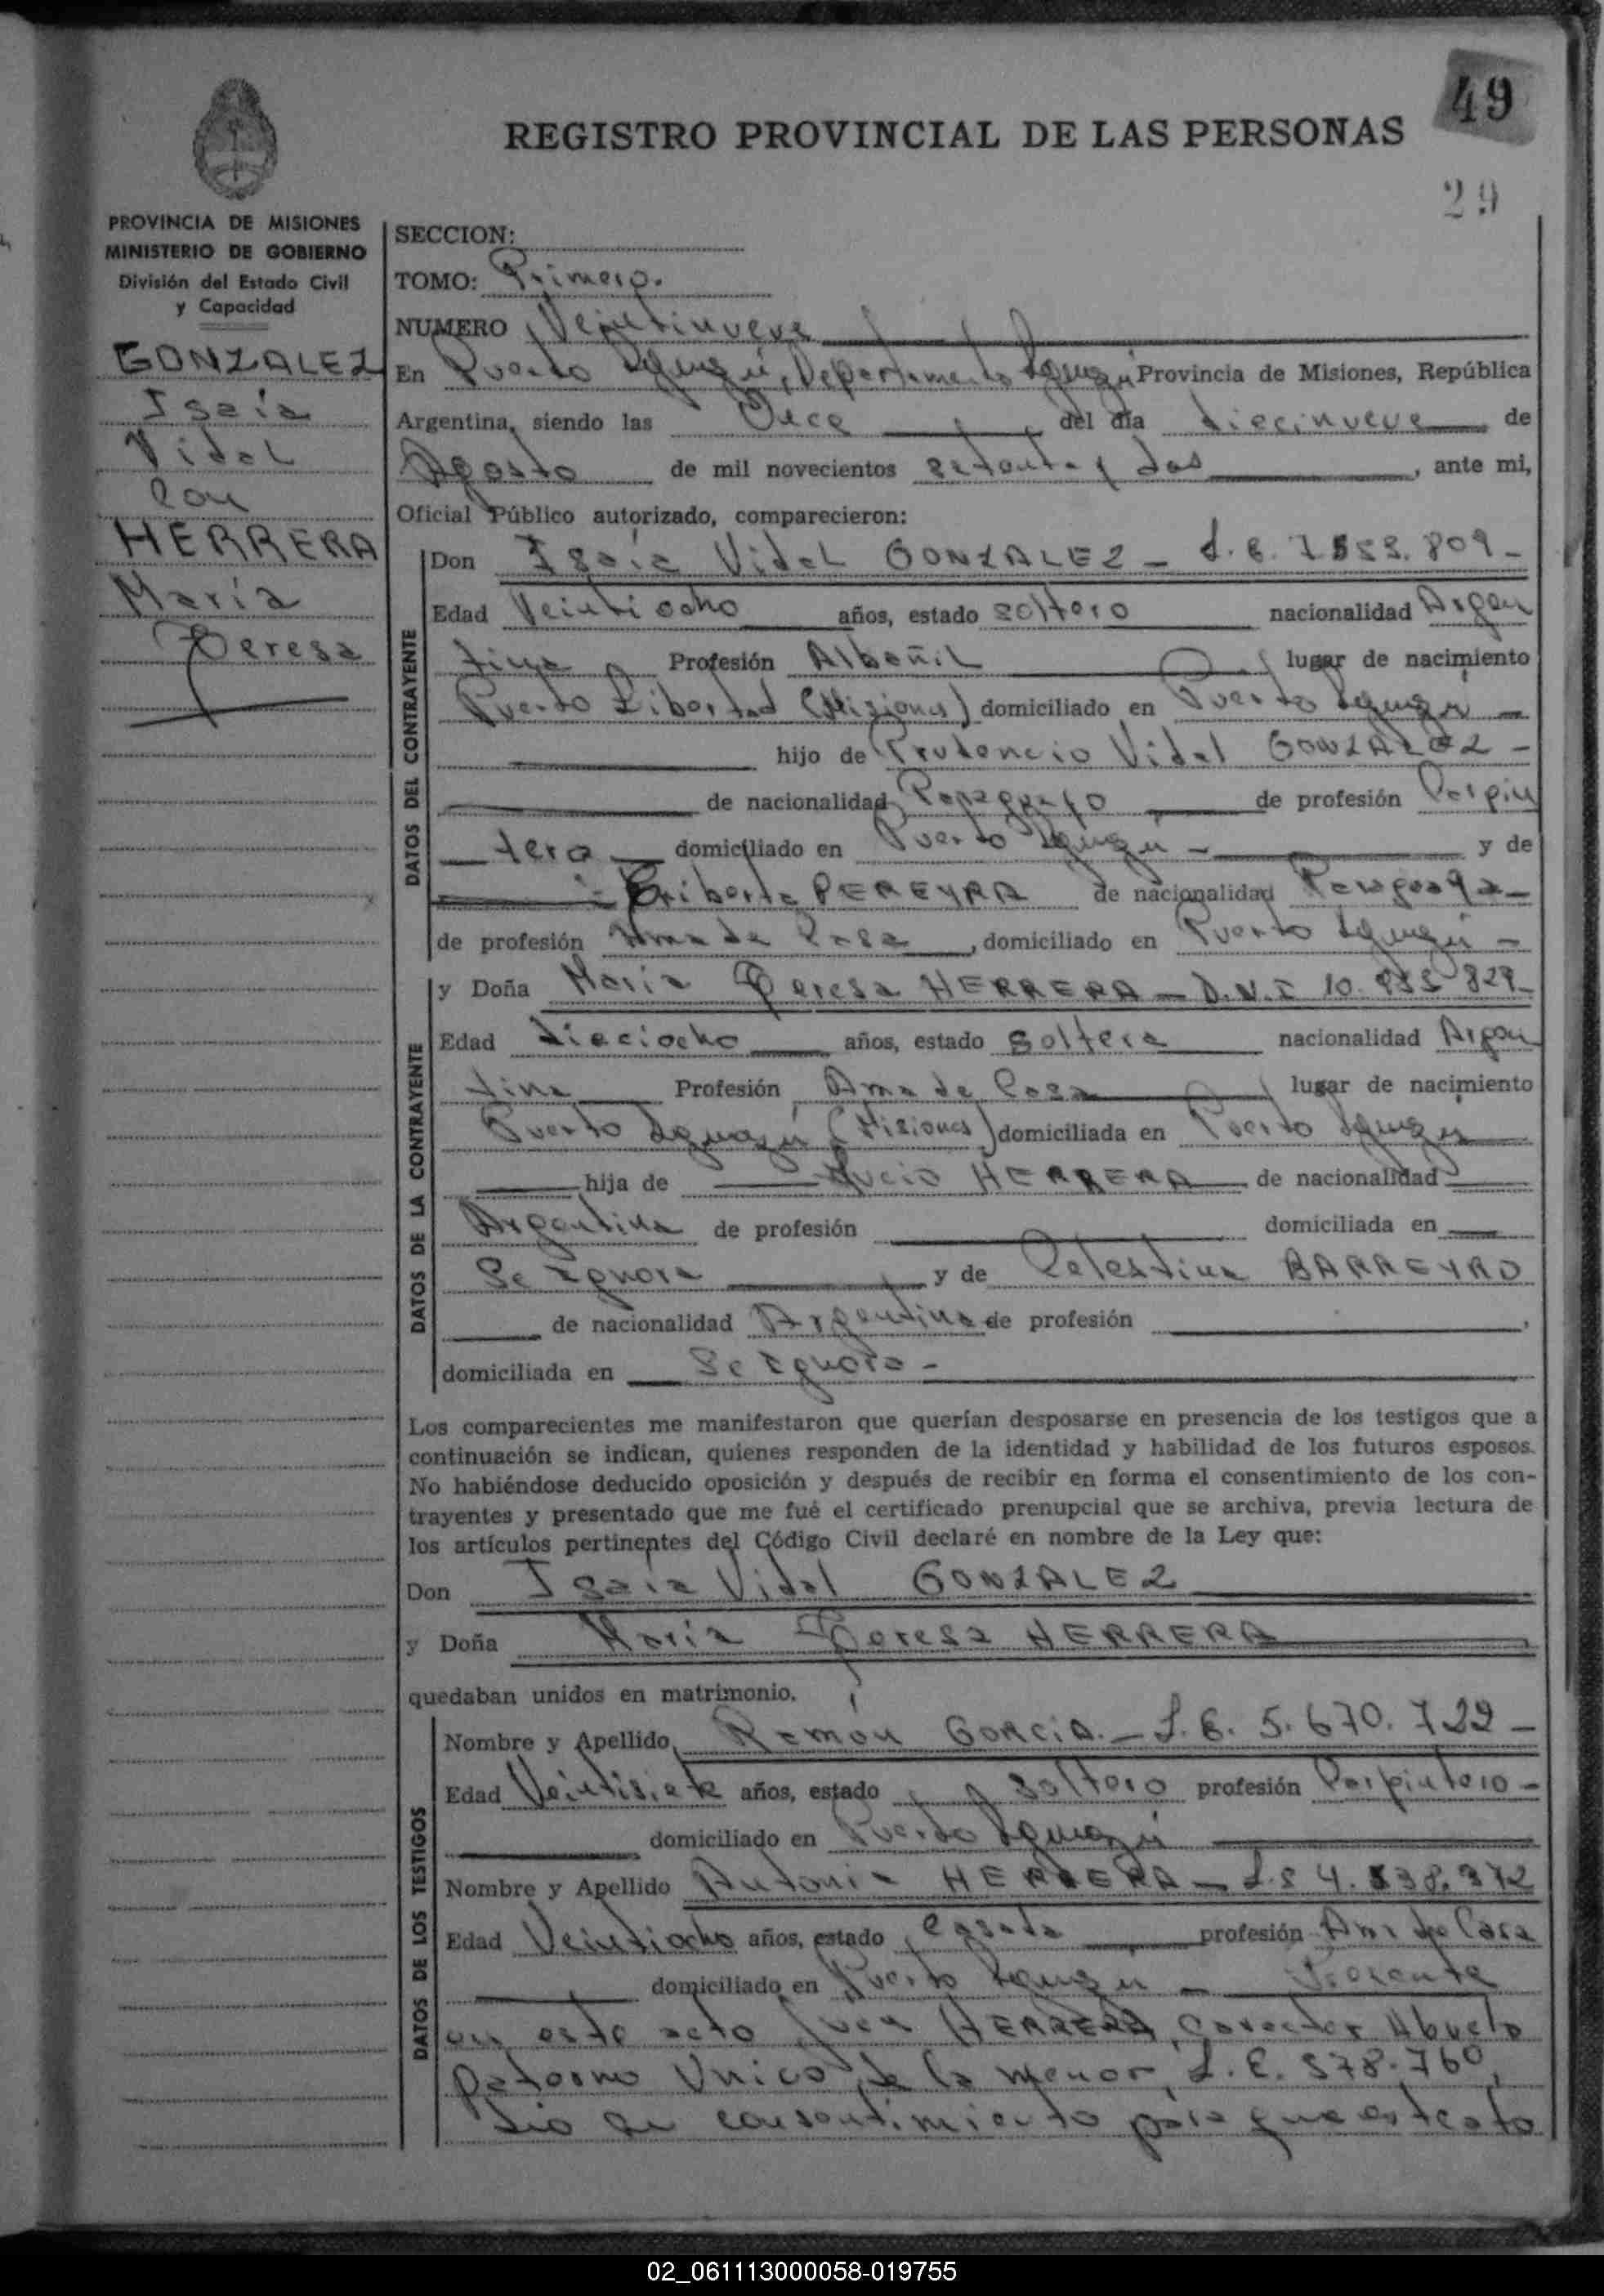 49
REGISTRO PROVINCIAL DE LAS PERSONAS
29
PROVINCIA DE MISIONES
MINISTERIO DE GOBIERNO
División del Estado Civil
y Capacidad
GONZALEZ
Isaía
Vidal
con
HERRERA
María
Teresa
SECCION:
TOMO: Primero.
NUMERO Veintinueve
En Puerto Iguazú, Departamento Iguazú Provincia de Misiones, República
Argentina, siendo las Once del día diecinueve de
Agosto de mil novecientos setenta y dos, ante mi,
Oficial Público autorizado, comparecieron:
DATOS DEL CONTRAYENTE
Don Isaía Vidal GONZALEZ - L.E. 809-
Edad Veintiocho años, estado soltero nacionalidad Argen
tina Profesión Albañil lugar de nacimiento
Puerto Libertad (Misiones) domiciliado en Puerto Iguazú -
hijo de Prudencio Vidal GONZALEZ -
de nacionalidad Paraguayo de profesión Carpin
tero domiciliado en Puerto Iguazú - y de
Eriberta PEREYRA de nacionalidad Paraguaya-
de profesión Ama de Casa, domiciliado en Puerto Iguazú -
DATOS DE LA CONTRAYENTE
y Doña María Teresa HERRERA - D.N.I 10. 829-
Edad dieciocho años, estado soltera nacionalidad Argen
tina Profesión Ama de Casa lugar de nacimiento
Puerto Iguazú (Misiones) domiciliada en Puerto Iguazú
hija de Lucio HERRERA de nacionalidad
Argentina de profesión domiciliada en
Se Ignora y de Celestina BARREYRO
de nacionalidad Argentina de profesión ,
domiciliada en Se Ignora -
Los comparecientes me manifestaron que querían desposarse en presencia de los testigos que a
continuación se indican, quienes responden de la identidad y habilidad de los futuros esposos.
No habiéndose deducido oposición y después de recibir en forma el consentimiento de los con-
trayentes y presentado que me fué el certificado prenupcial que se archiva, previa lectura de
los artículos pertinentes del Código Civil declaré en nombre de la Ley que:
Don Isaía Vidal GONZALEZ
y Doña María Teresa HERRERA
quedaban unidos en matrimonio.
DATOS DE LOS TESTIGOS
Nombre y Apellido Ramón GARCIA. - L.E. 5.670.722 -
Edad Veintisiete años, estado soltero profesión Carpintero -
domiciliado en Puerto Iguazú
Nombre y Apellido Antonia HERRERA - 4. 372
Edad Veintiocho años, estado casada profesión Ama de Casa
domiciliado en Puerto Iguazú - Presente
en este acto Juan HERRERA, carácter Abuelo
Paterno Unico de la menor, L.E. 578.760,
dio su consentimiento para que este acto
02_061113000058-019755